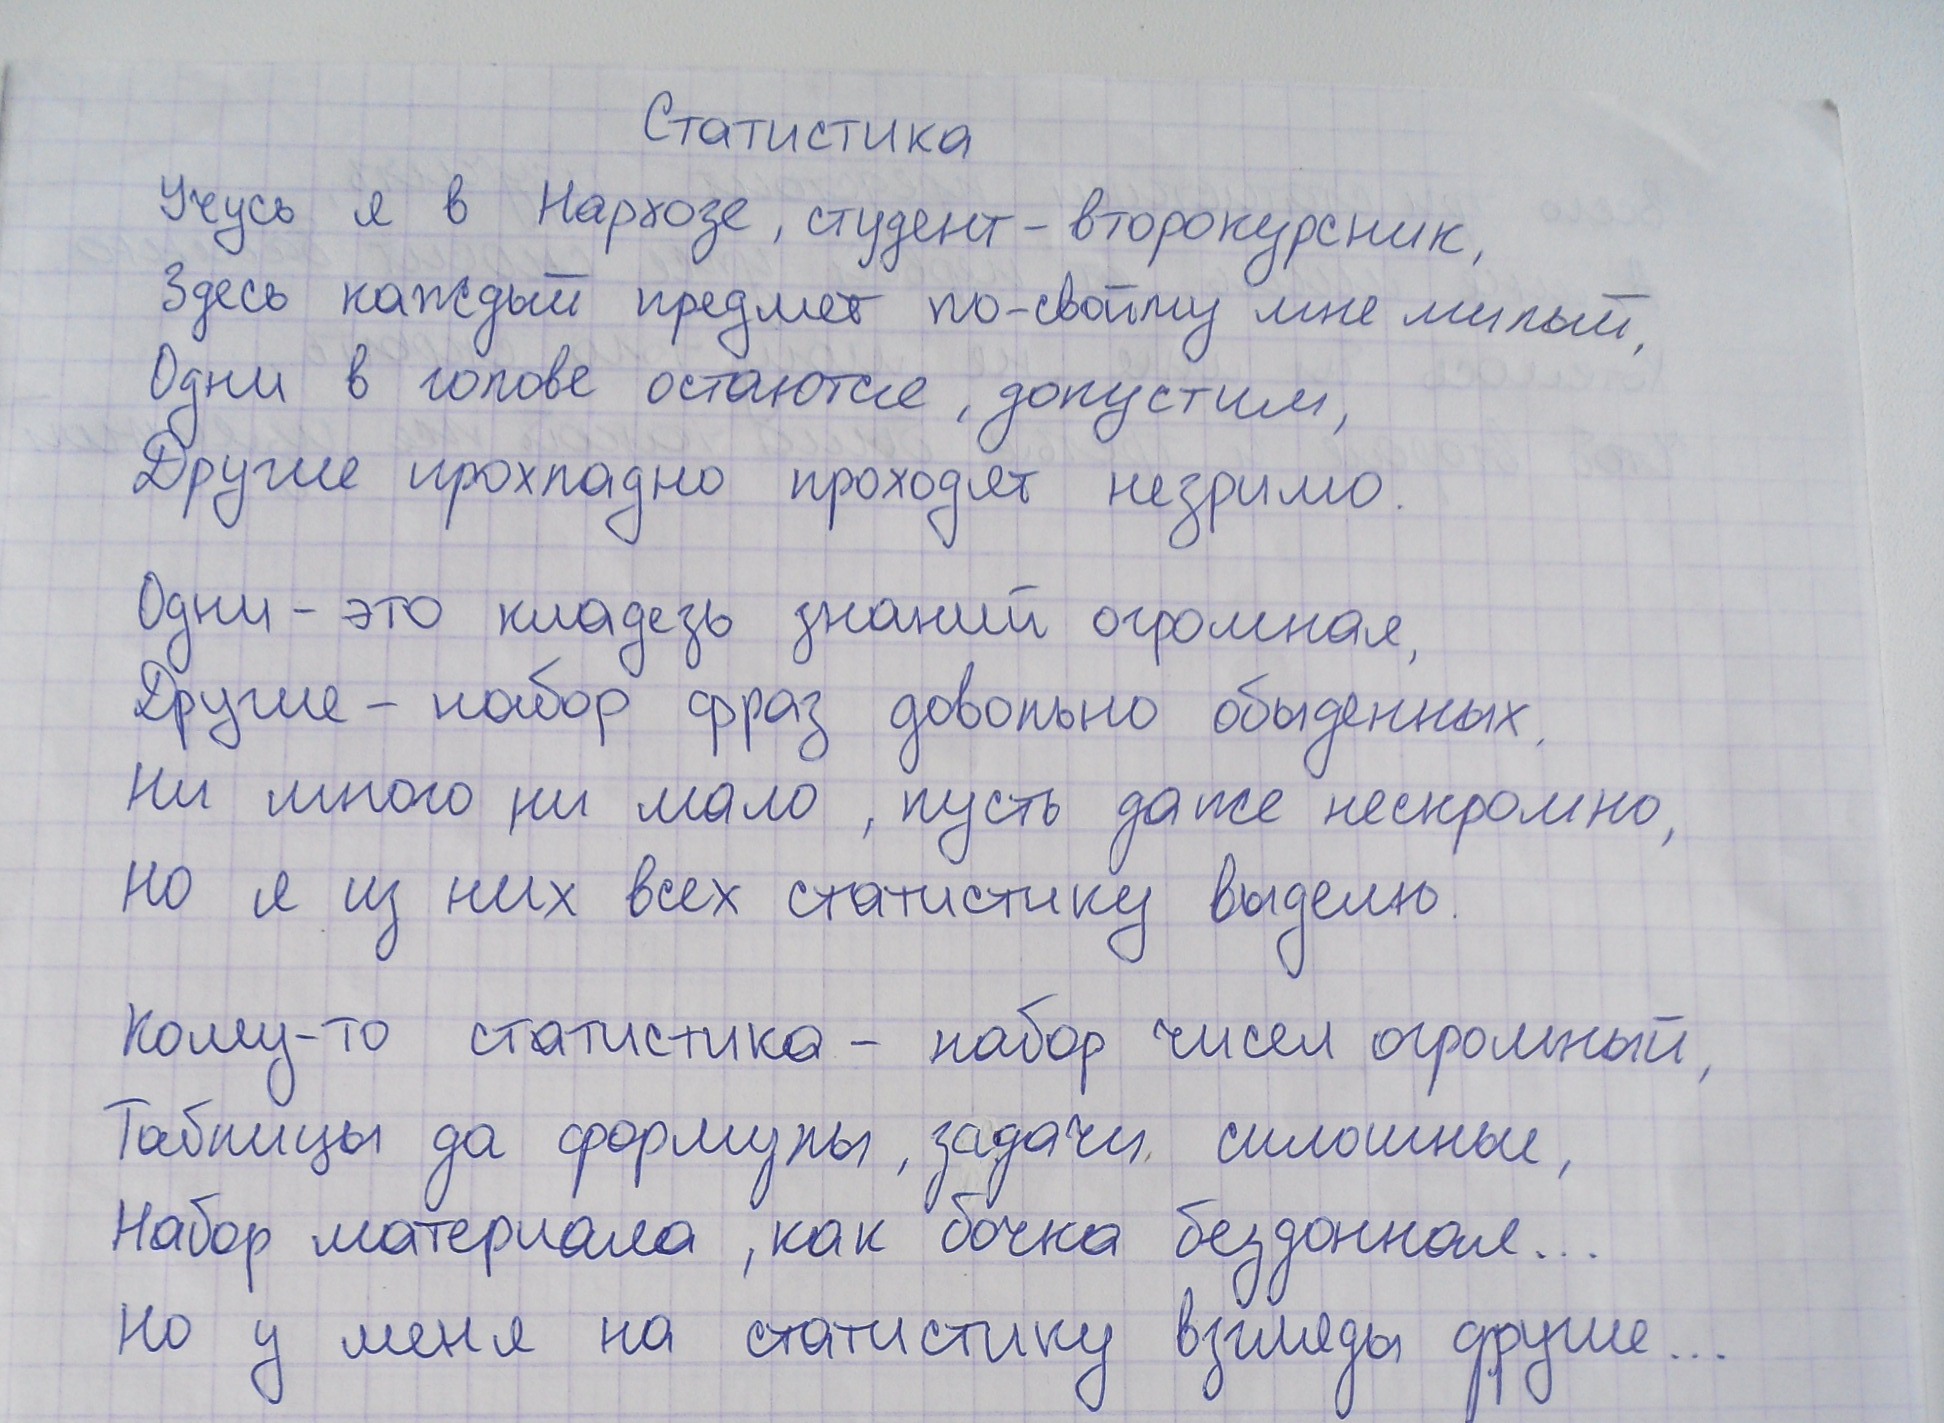 Статистика
Учусь я в Нархозе, студент-второкурсник,
Здесь каждый предмет по-свойму мне милый,
Одни в голове остаются, допустим,
Другие прохладно проходят незримо.
Одни - это кладезь знаний огромная,
Другие - набор фраз довольно обыденных,
Ни много ни мало, пусть даже нескромно,
Но я из них всех статистику выделю.
Кому-то статистика - набор чисел огромный,
Таблицы да формулы, задачи сплошные,
Набор материала, как бочка бездонная...
Но у меня на статистику взгляды другие...